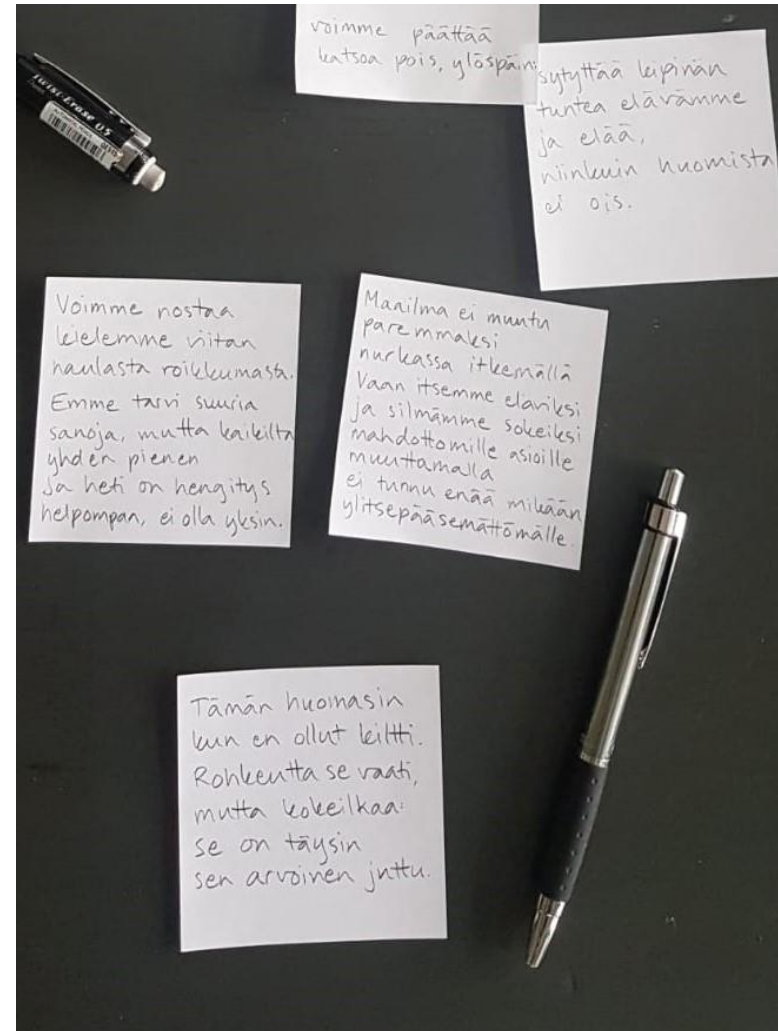 voimme päättää
katsoa pois, ylöspäin
sytyttää kipinän
tuntea elävämme
ja elää,
niinkuin huomista
ei ois.
TWIST-ERASE 0.5
Voimme nostaa
kielemme viitan
naulasta roikkumasta.
Emme tarvi suuria
sanoja, mutta kaikilta
yhden pienen
ja heti on hengitys
helpompan, ei olla yksin.
Maailma ei muutu
paremmaksi
nurkassa itkemällä
Vaan itsemme eläviksi
ja silmämme sokeiksi
mahdottomille asioille
muuttamalla
ei tunnu enää mikään
ylitsepääsemättömälle.
Tämän huomasin
kun en ollut kiltti.
Rohkeutta se vaati,
mutta kokeilkaa:
se on täysin
sen arvoinen juttu.